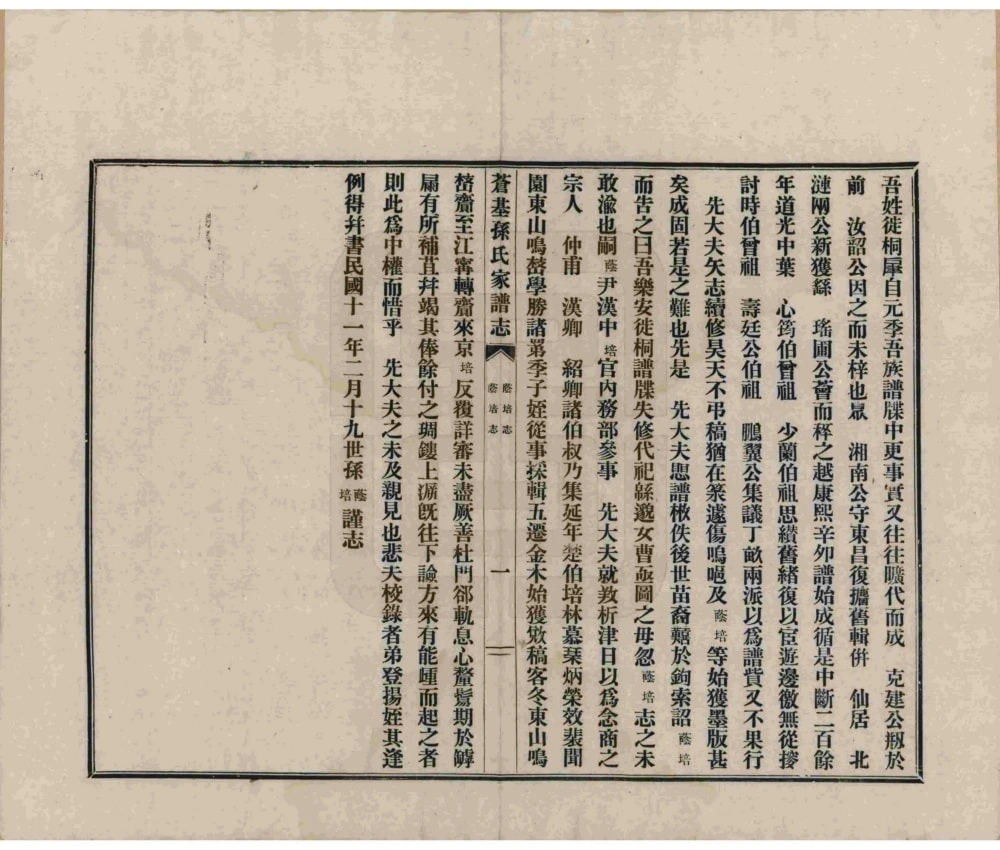 吾姓徙桐犀自元季吾族譜牒中更事實又往往曠代而成　克建公剏於
前　汝韶公因之而未梓也最　湘南公守東昌復攟舊輯倂　仙居　北
漣兩公新獲繇　瑤圃公薈而稡之越康熙辛卯譜始成循是中斷二百餘
年道光中葉　心筠伯曾祖　少蘭伯祖思纘舊緒復以宦遊邊徼無從撢
討時伯曾祖　壽廷公伯祖　鵬翼公集議丁畝兩派以爲譜貲又不果行
　先大夫矢志續修昊天不弔稿猶在篋遽傷嗚唈及蔭培等始獲墨版甚
矣成固若是之難也先是　先大夫思譜檄佚後世苗裔囏於鉤索詔蔭培
而告之曰吾樂安徙桐譜牒失修代祀緜邈女曹亟圖之毋忽蔭培志之未
敢渝也嗣蔭尹漢中培官內務部參事　先大夫就敎析津日以爲念商之
宗人　仲甫　漢卿　紹卿諸伯叔乃集延年楚伯培林慕琹炳榮效裴聞
園東山鳴嵆學勝諸弟季子姪從事採輯五遷金木始獲斆稿客冬東山鳴
蒼基孫氏家譜志
蔭培志
蔭培志
一
嵆齎至江甯轉齎來京培反覆詳審未盡厥善杜門郤軌息心釐鬠期於罅
屚有所補苴幷竭其俸餘付之琱鏤上㴑旣往下諗方來有能踵而起之者
則此爲中權而惜乎　先大夫之未及親見也悲夫校錄者弟登揚姪其逢
例得幷書民國十一年二月十九世孫蔭培謹志